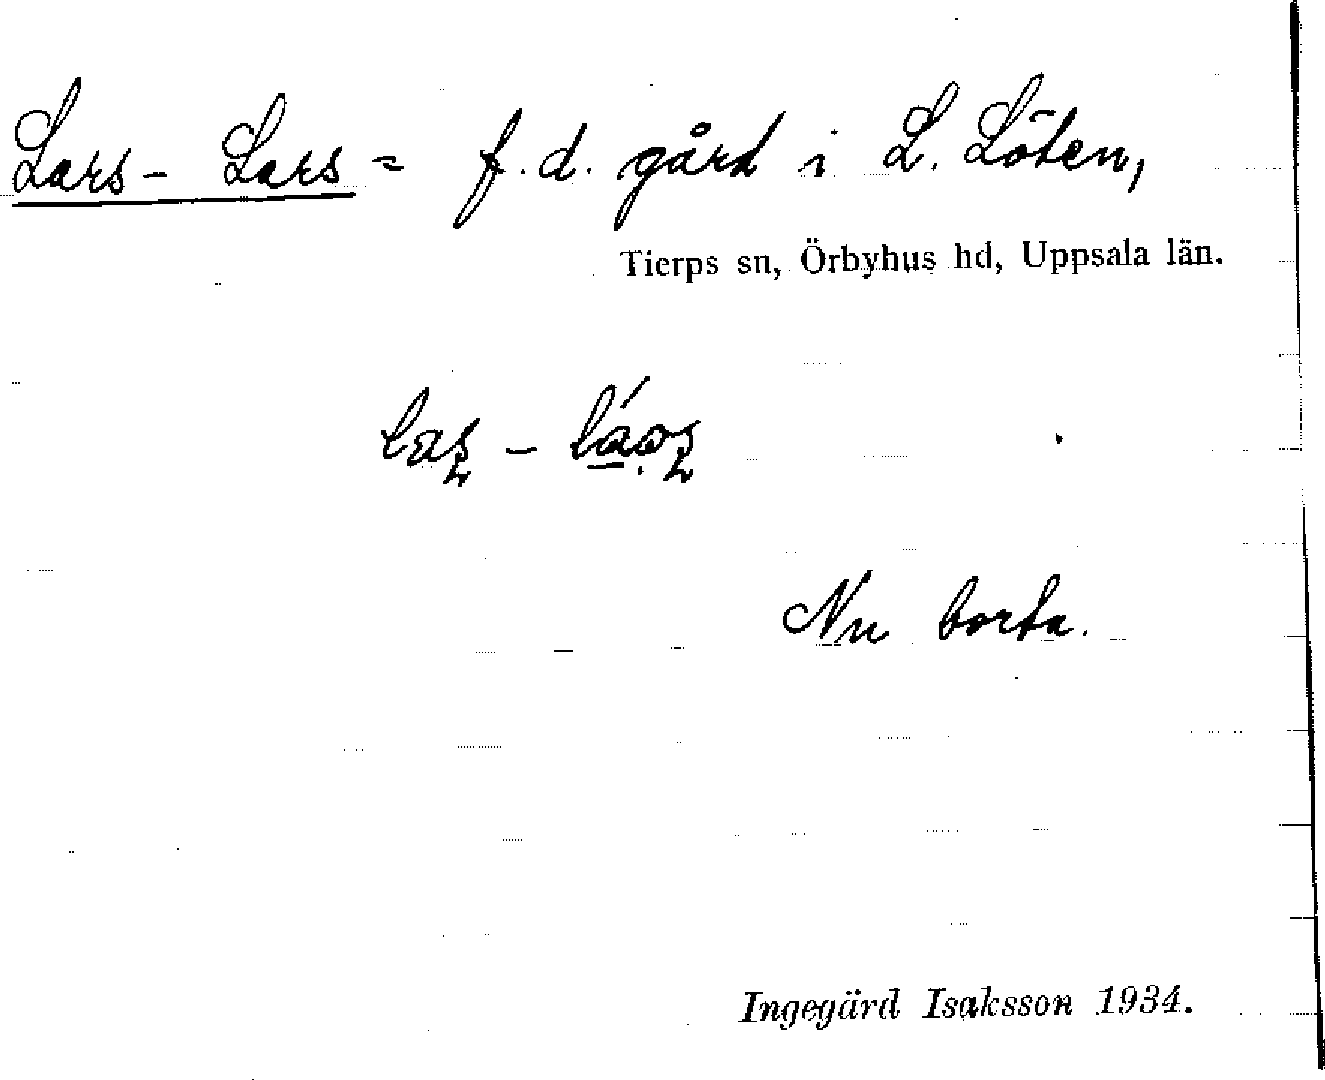 Lars - Lars = f. d. gård i L. Löten,
Tierps sn, Örbyhus hd, Uppsala län.
Nu borta.
Ingegärd Isaksson 1934.